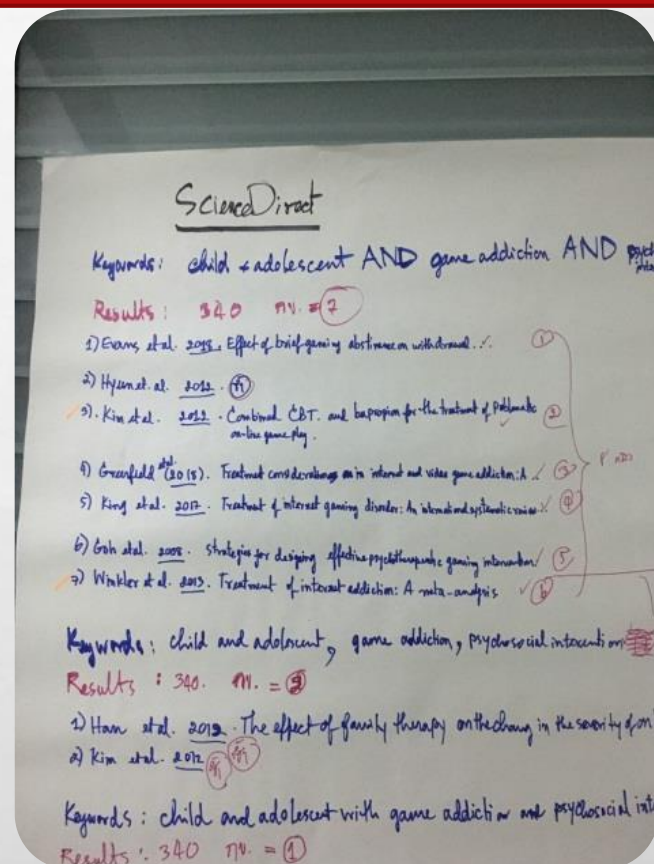 ScienceDirect
Keywords: child + adolescent AND game addiction AND
Results: 340 = 7
1) Evans et al. 2018. Effect of brief gaming abstinence on withdrawal 1
2) Hyun et. al. 2012.
3). Kim et al. 2012. Combined CBT. and bupropion for the treatment of Problematic 2
on-line game play.
4) Greenfield (2018). Treatment considerations in internet and video game addiction: A 3
5) King et al. 2017. Treatment of internet gaming disorder: An international systematic 4
6) Goh et al. 2008. strategies for designing effective psychotherapeutic gaming intervention 5
7) Winkler et al. 2013. Treatment of internet addiction: A meta-analysis 6
Keywords: child and adolescent, game addiction, psychosocial intervention
Results: 340. =
1) Han et al. 2012. The effect of family therapy on the chang in the severity of on
2) Kim et al. 2012
Keywords: child and adolescent with game addiction and psychosocial
Results: 340 = 1